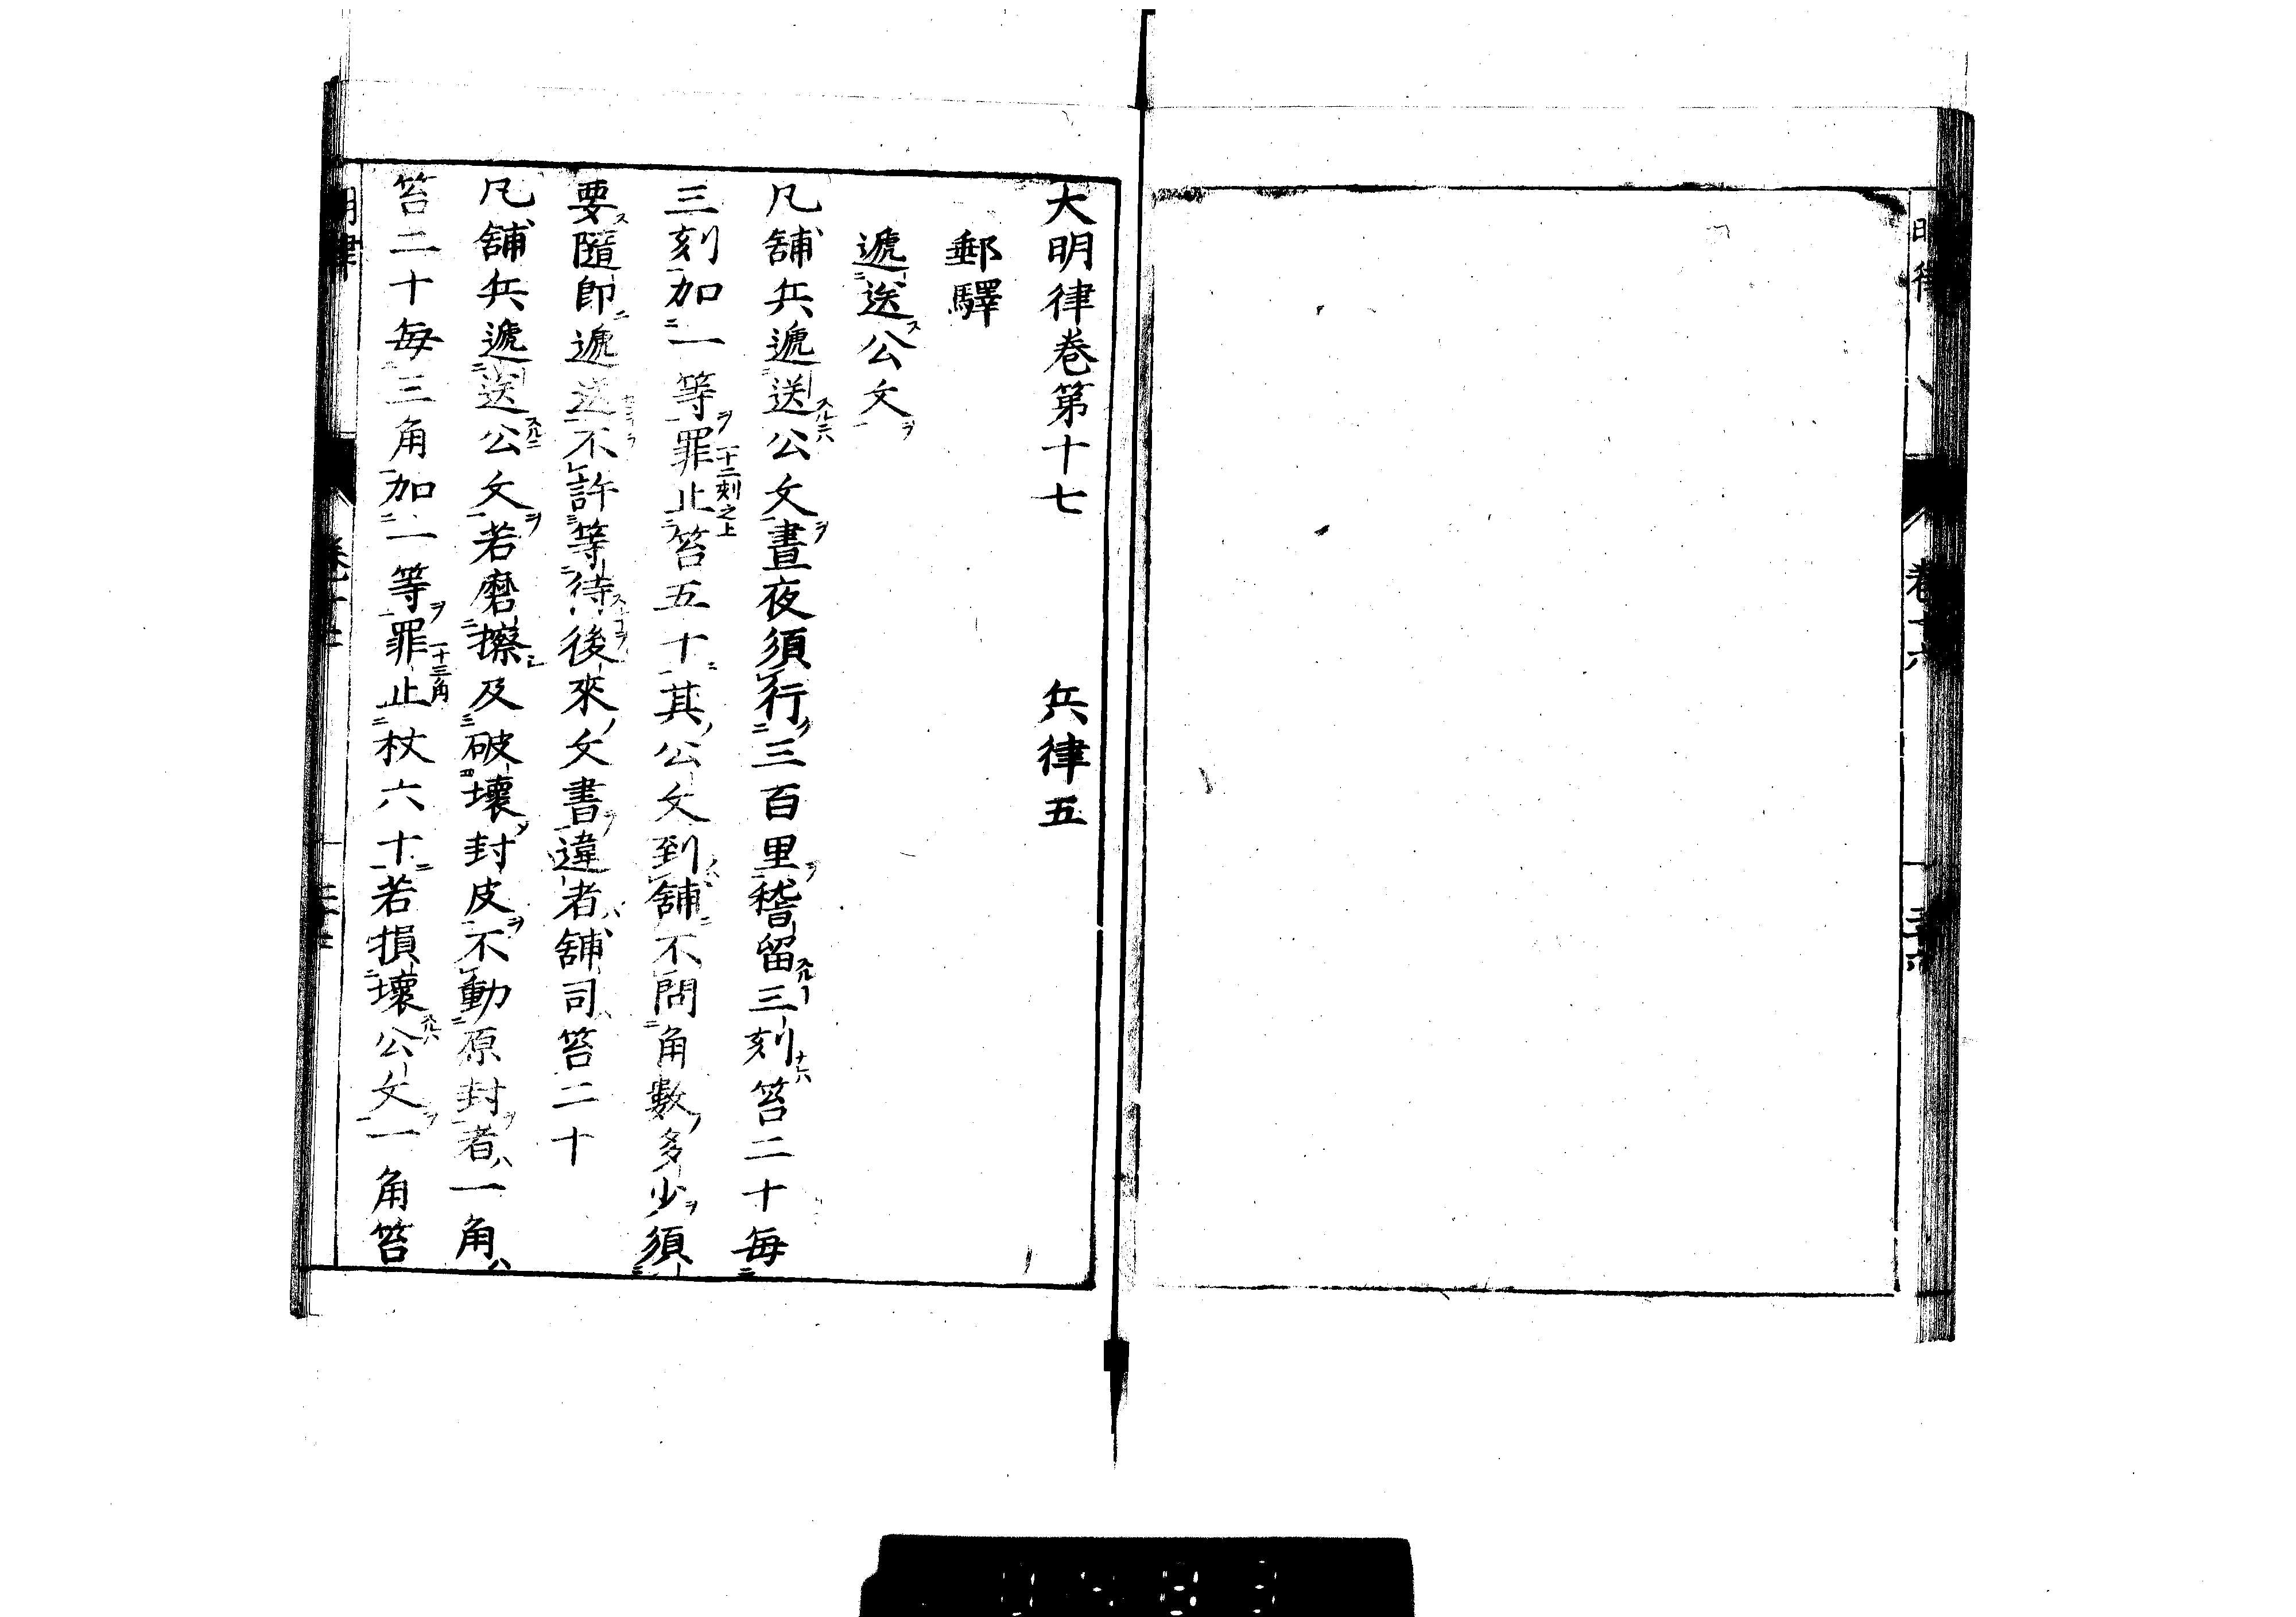 大明律卷第十七 兵律五
郵驛
遞送公文
凡舖兵遞送公文晝夜須行三百里稽留三刻笞二十每
三刻加一等罪止笞五十其公文到舖不問角數多少須
一十二刻之上
要隨即遞送不許等待後來文書違者舖司笞二十
凡舖兵遞送公文若磨擦及破壞封皮不動原封者一角
笞二十每三角加一等罪止杖六十若損壞公文一角笞
一十三角